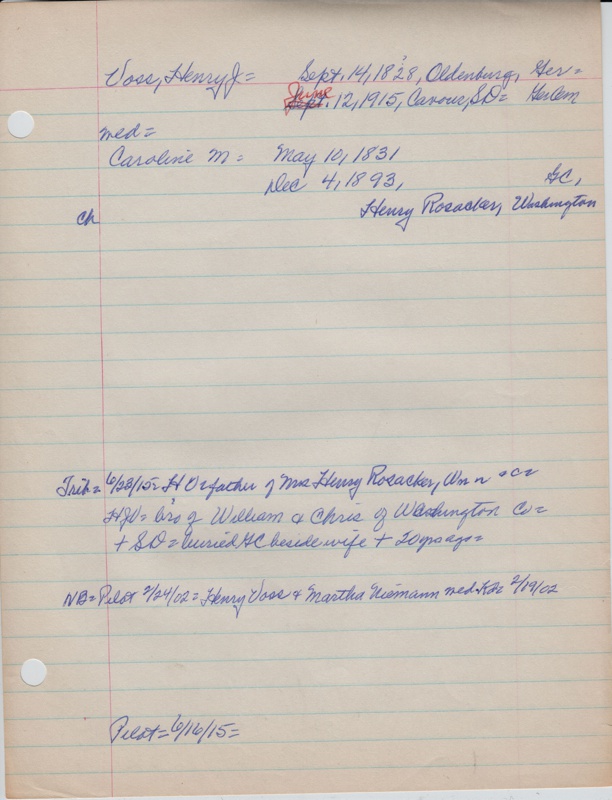 Voss, Henry J= Sept. 14, 1828, Oldenburg, Ger=
June
Sept. 12, 1915, Cavour, SD= GerCem
med=
Caroline M= May 10, 1831
Dec 4, 1893, GC,
ch Henry Rosacker, Washington
Trib= 6/23/15= H V=father of Mrs Henry Rosacker,
HJV= bro of William & Chris of Washington Co=
+ SD= buried GC beside wife + 20 yrs ago=
NB= Pilot 2/24/02= Henry Voss & Martha Niemann med 2/19/02
Pilot= 6/16/15=